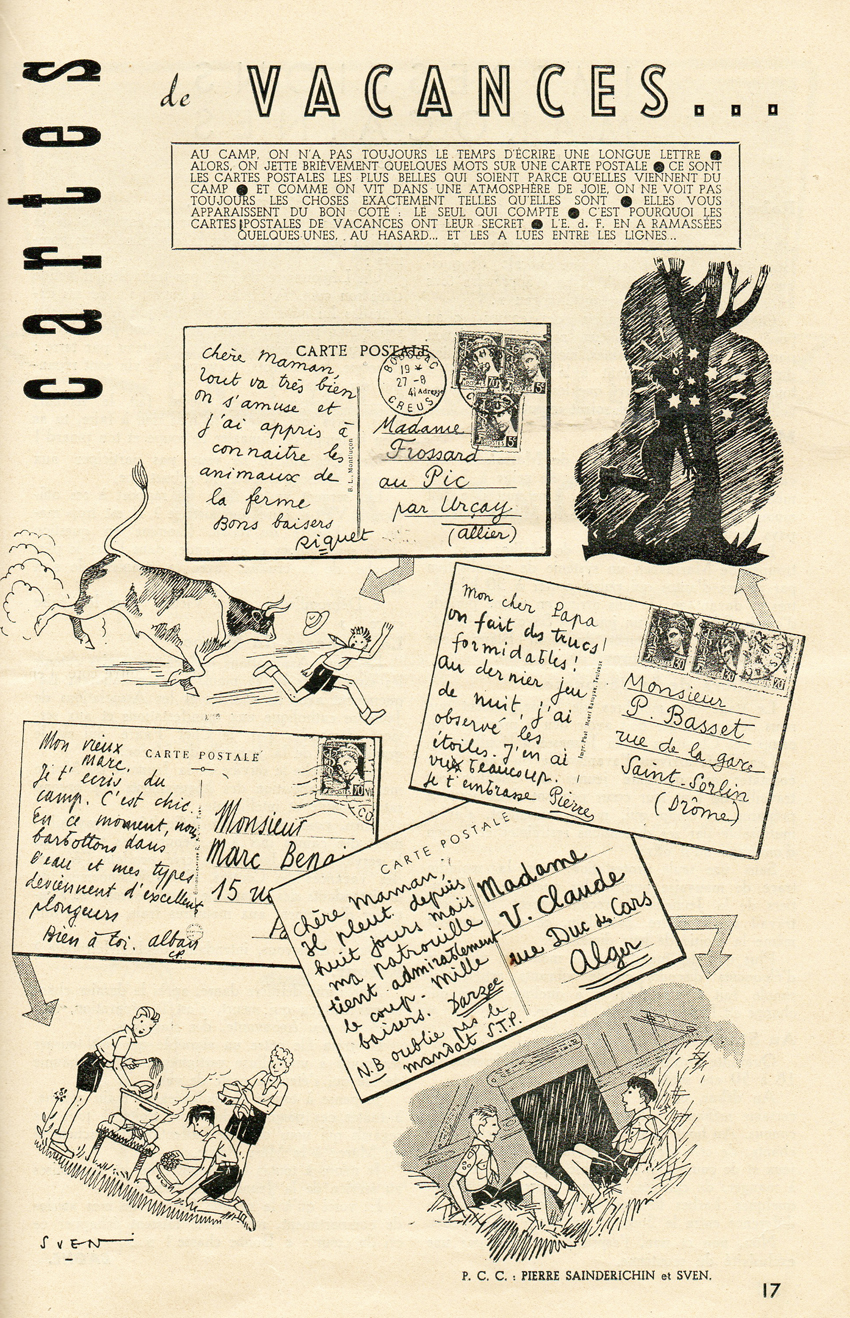 cartes
de VACANCES...
AU CAMP, ON N'A PAS TOUJOURS LE TEMPS D'ÉCRIRE UNE LONGUE LETTRE ●
ALORS, ON JETTE BRIÈVEMENT QUELQUES MOTS SUR UNE CARTE POSTALE ● CE SONT
LES CARTES POSTALES LES PLUS BELLES QUI SOIENT PARCE QU'ELLES VIENNENT DU
CAMP ● ET COMME ON VIT DANS UNE ATMOSPHÈRE DE JOIE, ON NE VOIT PAS
TOUJOURS LES CHOSES EXACTEMENT TELLES QU'ELLES SONT ● ELLES VOUS
APPARAISSENT DU BON COTÉ : LE SEUL QUI COMPTE ● C'EST POURQUOI LES
CARTES POSTALES DE VACANCES ONT LEUR SECRET ● L'E. d. F. EN A RAMASSÉES
QUELQUES-UNES, AU HASARD... ET LES A LUES ENTRE LES LIGNES...
CARTE POSTALE
chère maman,
tout va très bien
on s'amuse et
j'ai appris à
connaitre les
animaux de
la ferme
Bons baisers
Riquet
B. L., Montluçon
19 *
27-8
41
CREUSE
Adresse
Madame
Frossard
au Pic
par Urçay
(allier)
Mon cher Papa
on fait des trucs
formidables!
au dernier jeu
de nuit, j'ai
observé les
étoiles. J'en ai
vu beaucoup.
Je t'embrasse Pierre
Monsieur
P. Basset
rue de la gare
Saint-Sorlin
(Drôme)
CARTE POSTALE
Mon vieux
Marc,
Je t'ecris du
camp. C'est chic.
En ce moment, nous
barbottons dans
l'eau et mes types
deviennent d'excellents
plongeurs
Bien à toi. alban
CP
Monsieur
Marc Benai
15
CARTE POSTALE
Chère Maman,
Il pleut depuis
huit jours mais
ma patrouille
tient admirablement
le coup. Mille
baisers. Darzee
N.B oublie pas le
mandat S.T.P.
Madame
V. Claude
rue Duc des Cars
Alger
SVEN
P. C. C. : PIERRE SAINDERICHIN et SVEN.
17